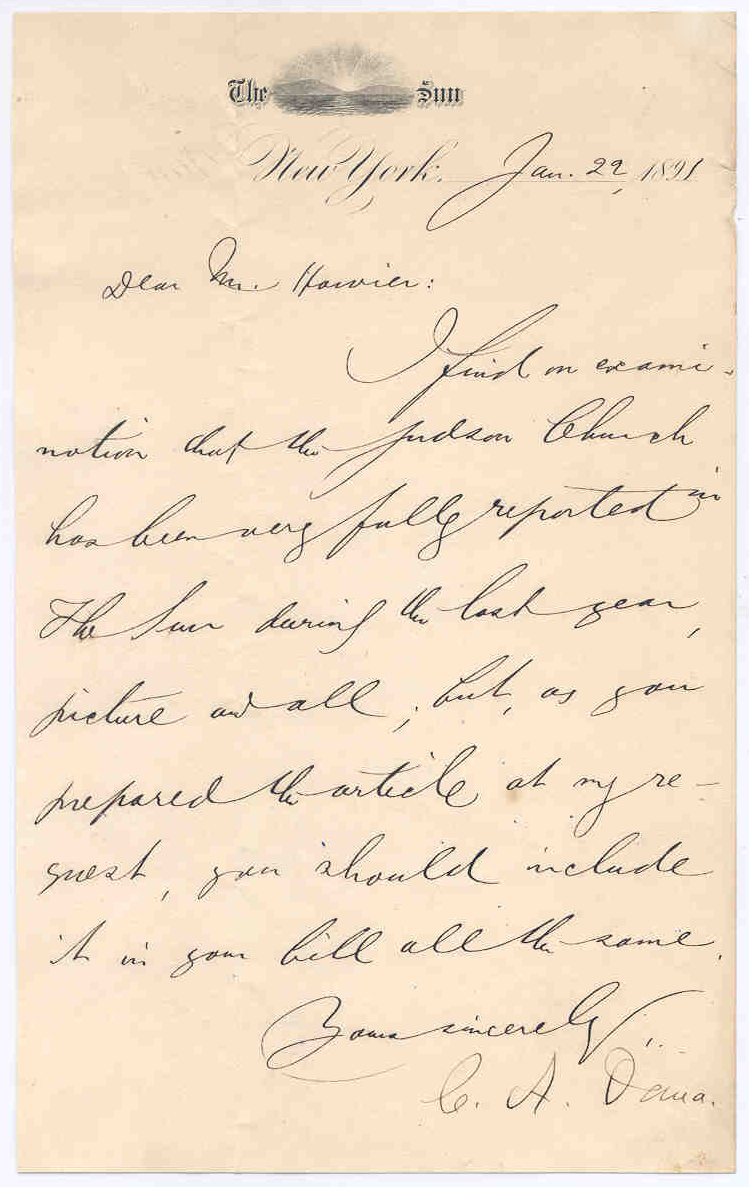 The Sun
New York. Jan. 22, 1891
Dear Mr.
I find on exami-
nation that the Judson Church
has been very fully reported in
The Sun during the last year,
picture and all; but, as you
prepared the article at my re-
quest, you should include
it in your bill all the same.
Yours sincerely,
C. A. Dana.